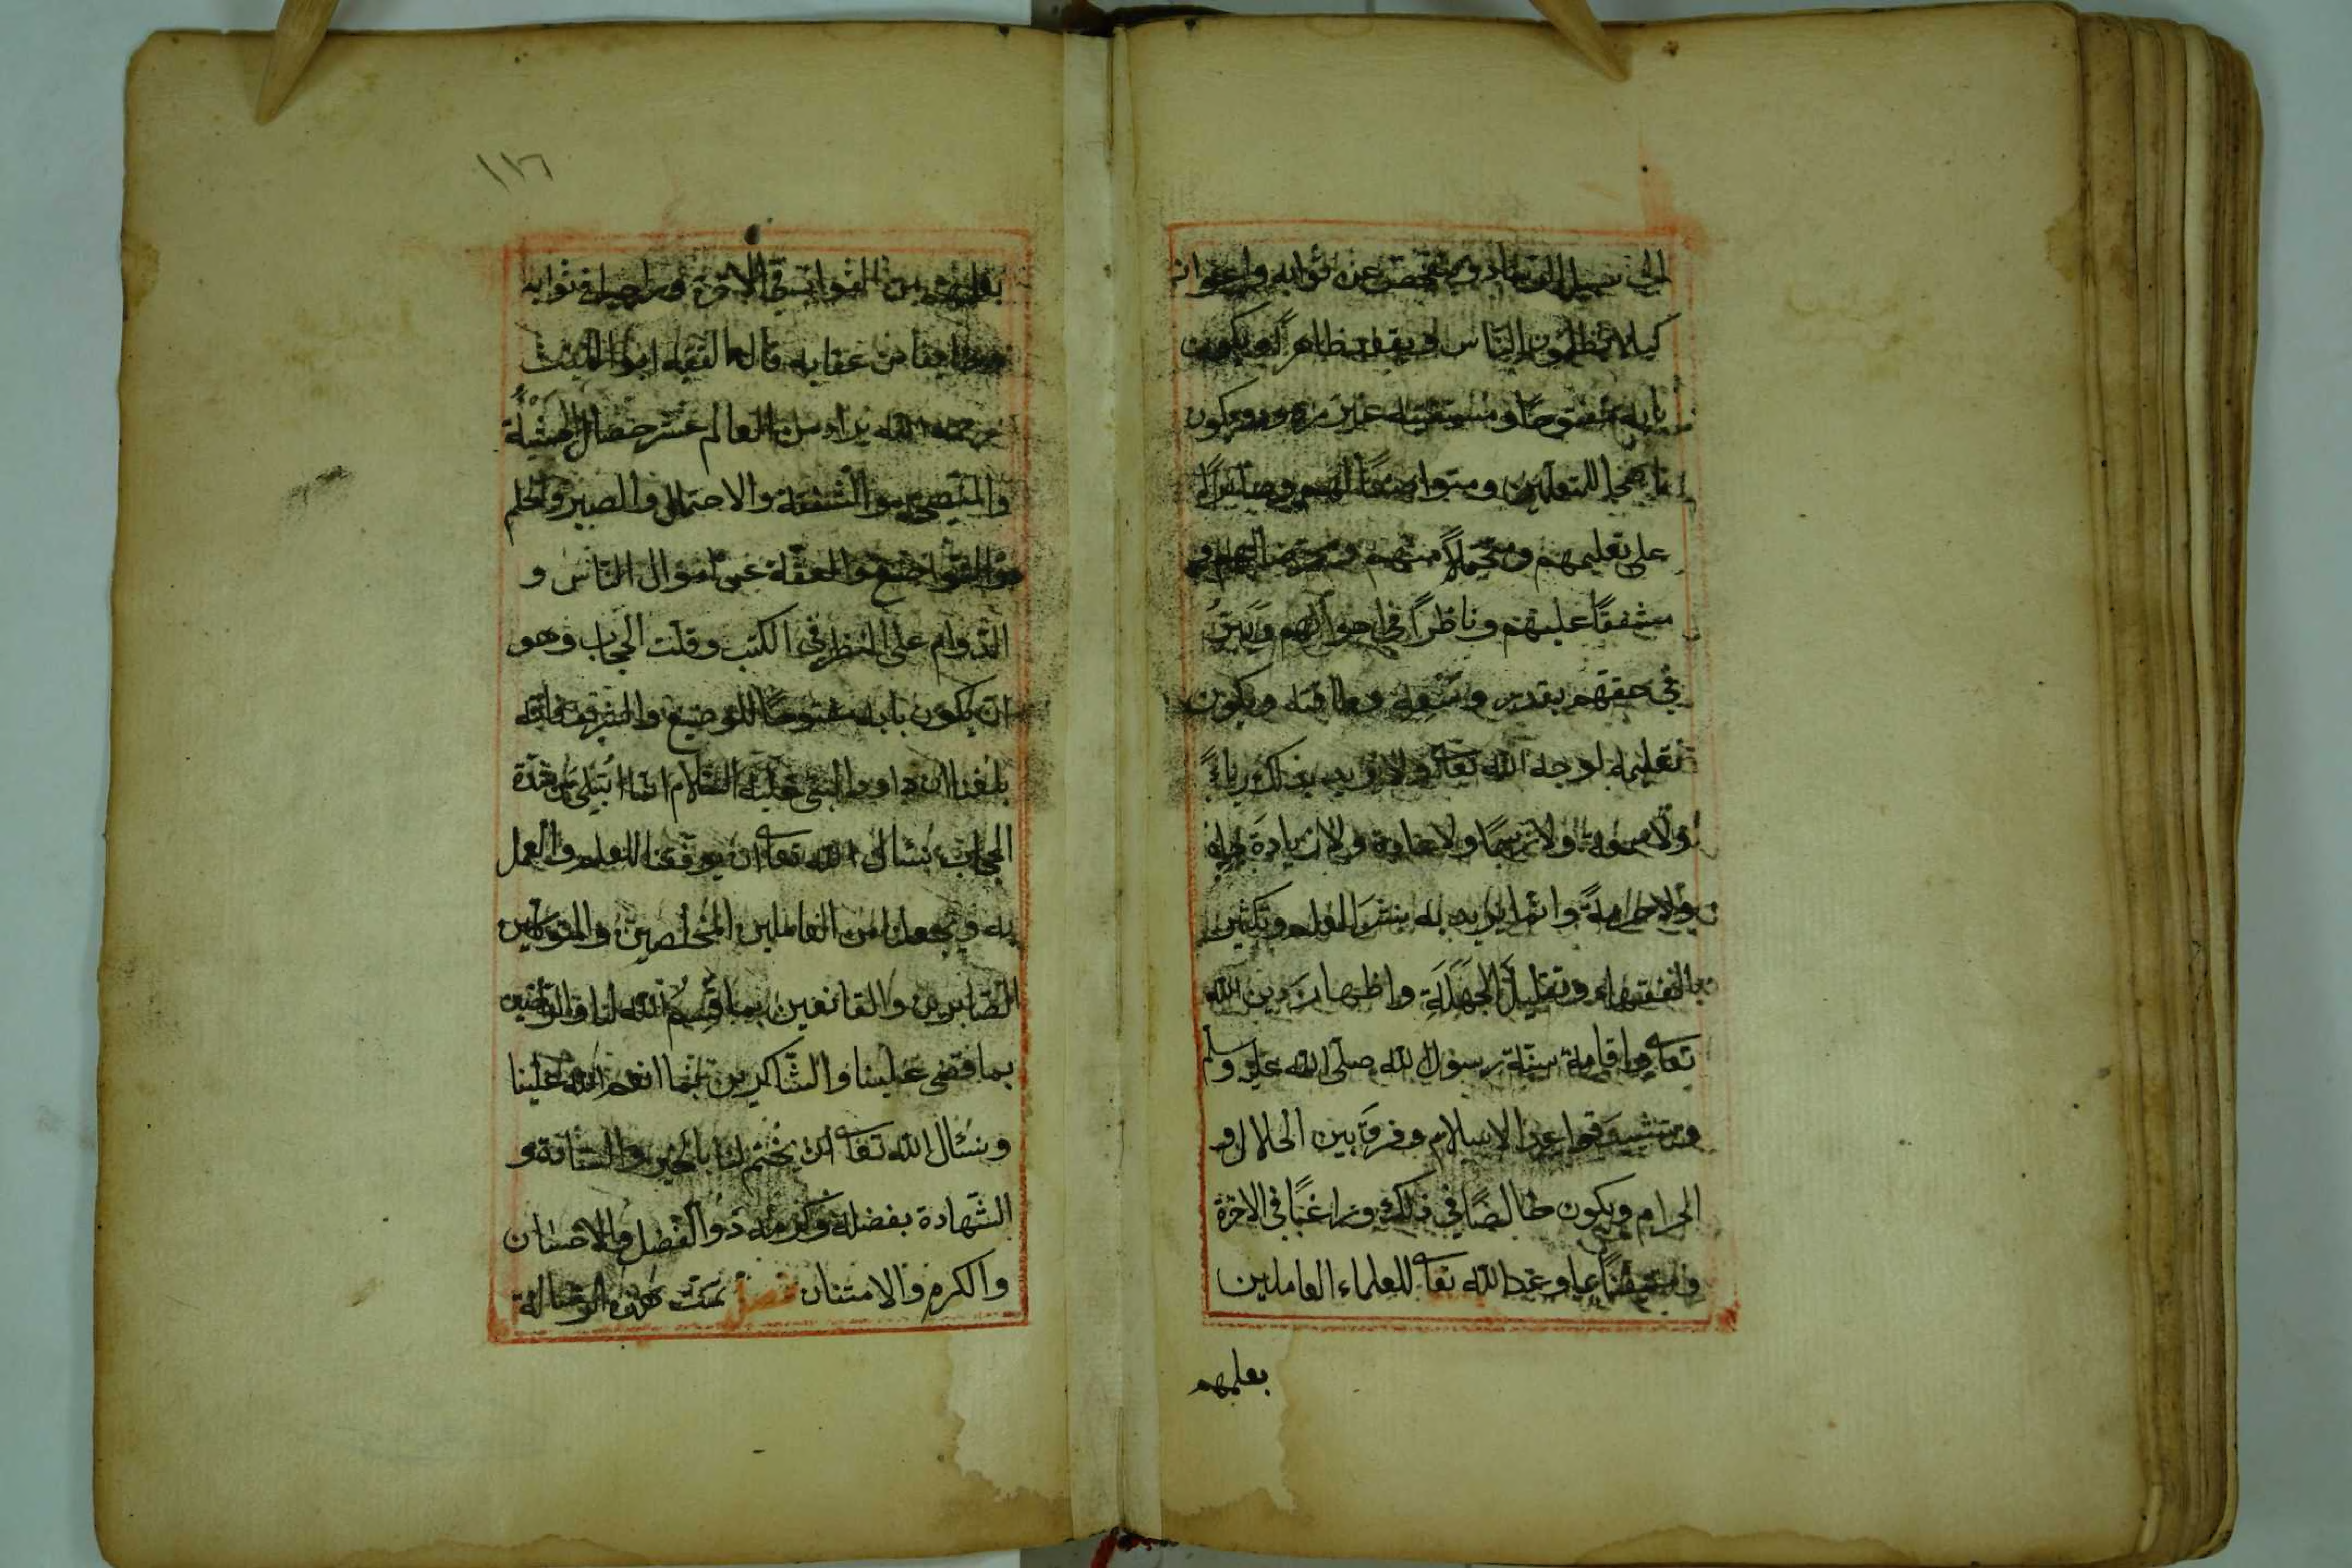 الى سبيل الرشاد و عن ثوابه
كيلا الناس ظاهر ويكون
بابه مفتوحًا و ويكون
ناصحا للمتعلمين ومتواضعًا لهم وصابرًا
على تعليمهم ومتحملاً منهم
مشفقًا عليهم وناظرًا في احوالهم
في حقهم بقدر وسعه وطاقته ويكون
تعليمه لوجه الله تعا ولا يريد بذلك رياءً
ولا سمعة ولا رسمًا ولا عادة ولا زيادة
ولا وانما يريد به نشر العلم وتكثير
الفقهاء وتقليل الجهلة واظهار دين الله
تعا واقامة سنة رسول الله صلى الله عليه وسلم
قواعد الاسلام وفرق بين الحلال و
الحرام ويكون خالصًا في ذلك وراغبًا في الاخرة
وعد الله تعا للعلماء العاملين
بعلمهم
١١٦
بعلمهم من الثواب في الاخرة في ثوابه
من عقابه قال الفقيه ابو الليث
رحمه الله يراد من العالم عشر خصال الخشية
والنصيحة والشفقة والاحتمال والصبر والحلم
والتواضع والعفة عن اموال الناس و
الدوام على النظر في الكتب وقلت الحجاب وهو
ان يكون بابه مفتوحًا للوضيع والشريف فانه
بلغنا ان داود النبي عليه السلام انما ابتلي من شدة
الحجاب نسال الله تعا ان يوفقنا للعلم والعمل
به ويجعلنا من العاملين المخلصين والمتوكلين
الصابرين والقانعين بما قسم الله لنا والراضين
بما قضى علينا والشاكرين بما انعم الله علينا
ونسئال الله تعا ان يختم لنا بالخير والسعادة و
الشهادة بفضله وكرمه ذو الفضل والاحسان
والكرم والامتنان تمت هذه الرسالة